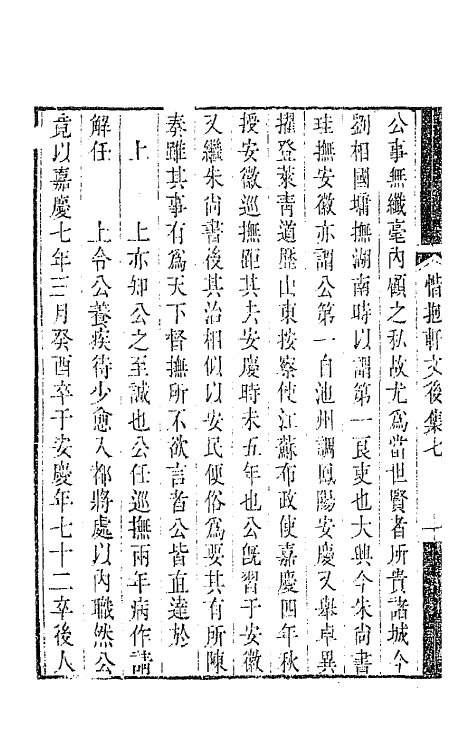 惜抱軒文後集七
一
公事無纖毫內顧之私故尤爲當世賢者所貴諸城今
劉相國墉撫湖南時以謂第一良吏也大興今朱尚書
珪撫安徽亦謂公第一自池州調鳳陽安慶又舉卓異
擢登萊青道歴山東按察使江蘇布政使嘉慶四年秋
授安徽巡撫距其去安慶時未五年也公旣習于安徽
又繼朱尚書後其治相似以安民便俗爲要其有所陳
奏雖其事有爲天下督撫所不欲言者公皆直達於
上　　上亦知公之至誠也公任巡撫兩年病作請
解任　　上令公養疾待少愈入都將處以內職然公
竟以嘉慶七年三月癸酉卒于安慶年七十二卒後人